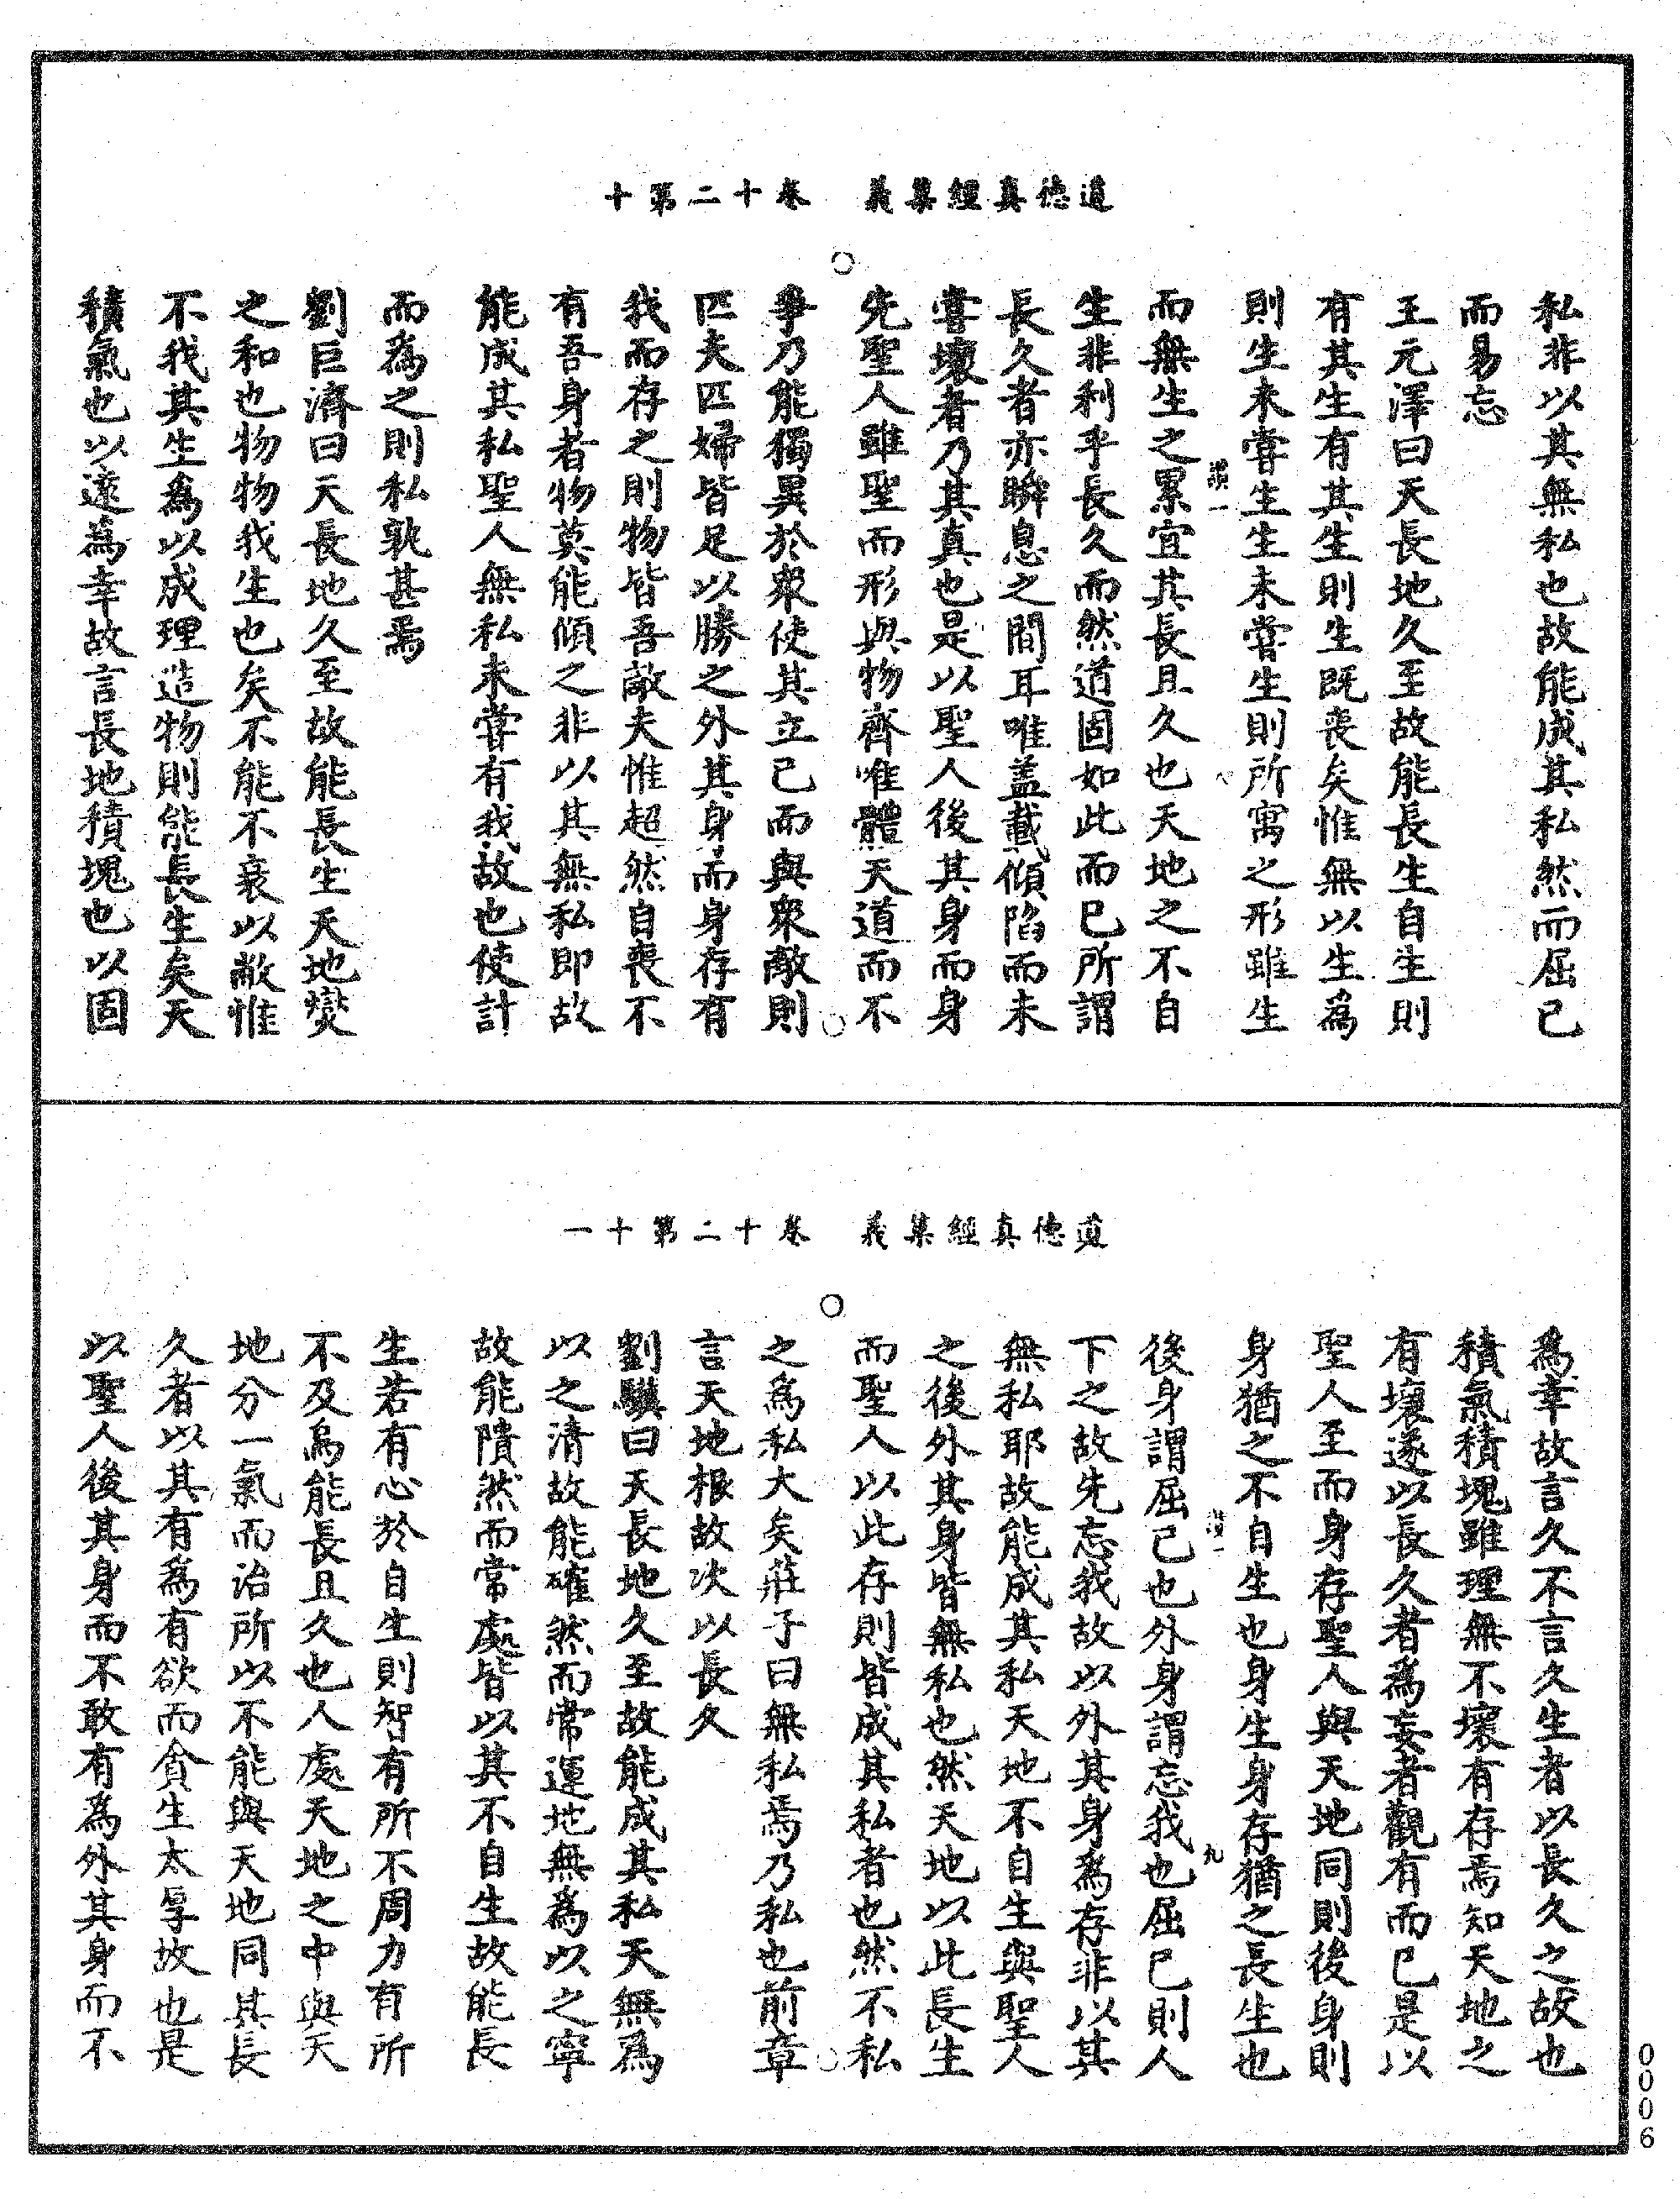 道德真經集義　卷十二第十
私非以其無私也故能成其私然而屈己
而易忘
王元澤曰天長地久至故能長生自生則
有其生有其生則生既喪矣惟無以生為
則生未嘗生生未嘗生則所寓之形雖生
而無生之累宜其長且久也天地之不自
生非利乎長久而然道固如此而已所謂
長久者亦瞬息之間耳唯蓋載傾陷而未
嘗壞者乃其真也是以聖人後其身而身
先聖人雖聖而形與物齊唯體天道而不
爭乃能獨異於衆使其立己而與衆敵則
匹夫匹婦皆足以勝之外其身而身存有
我而存之則物皆吾敵夫惟超然自喪不
有吾身者物莫能傾之非以其無私即故
能成其私聖人無私未嘗有我故也使計
而為之則私孰甚焉
劉巨濟曰天長地久至故能長生天地燮
之和也物物我生也矣不能不衰以敝惟
不我其生為以成理造物則能長生矣天
積氣也以遠為幸故言長地積塊也以固
道德真經集義　卷十二第十一
為幸故言久不言久生者以長久之故也
積氣積塊雖理無不壞有存焉知天地之
有壞遂以長久者為妄者觀有而已是以
聖人至而身存聖人與天地同則後身則
身猶之不自生也身生身存猶之長生也
後身謂屈己也外身謂忘我也屈己則人
下之故先忘我故以外其身為存非以其
無私耶故能成其私天地不自生與聖人
之後外其身皆無私也然天地以此長生
而聖人以此存則皆成其私者也然不私
之為私大矣莊子曰無私焉乃私也前章
言天地根故次以長久
劉驥曰天長地久至故能成其私天無為
以之清故能確然而常運地無為以之寧
故能隤然而常處皆以其不自生故能長
生若有心於自生則智有所不周力有所
不及烏能長且久也人處天地之中與天
地分一氣而治所以不能與天地同其長
久者以其有為有欲而貪生太厚故也是
以聖人後其身而不敢有為外其身而不
0006